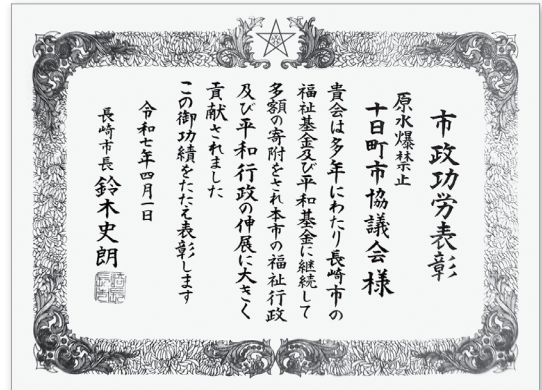 市政功労表彰
原水爆禁止
十日町市協議会様
貴会は多年にわたり長崎市の
福祉基金及び平和基金に継続して
多額の寄附をされ本市の福祉行政
及び平和行政の伸展に大きく
貢献されました
この御功績をたたえ表彰します
令和七年四月一日
長崎市長 鈴木史朗